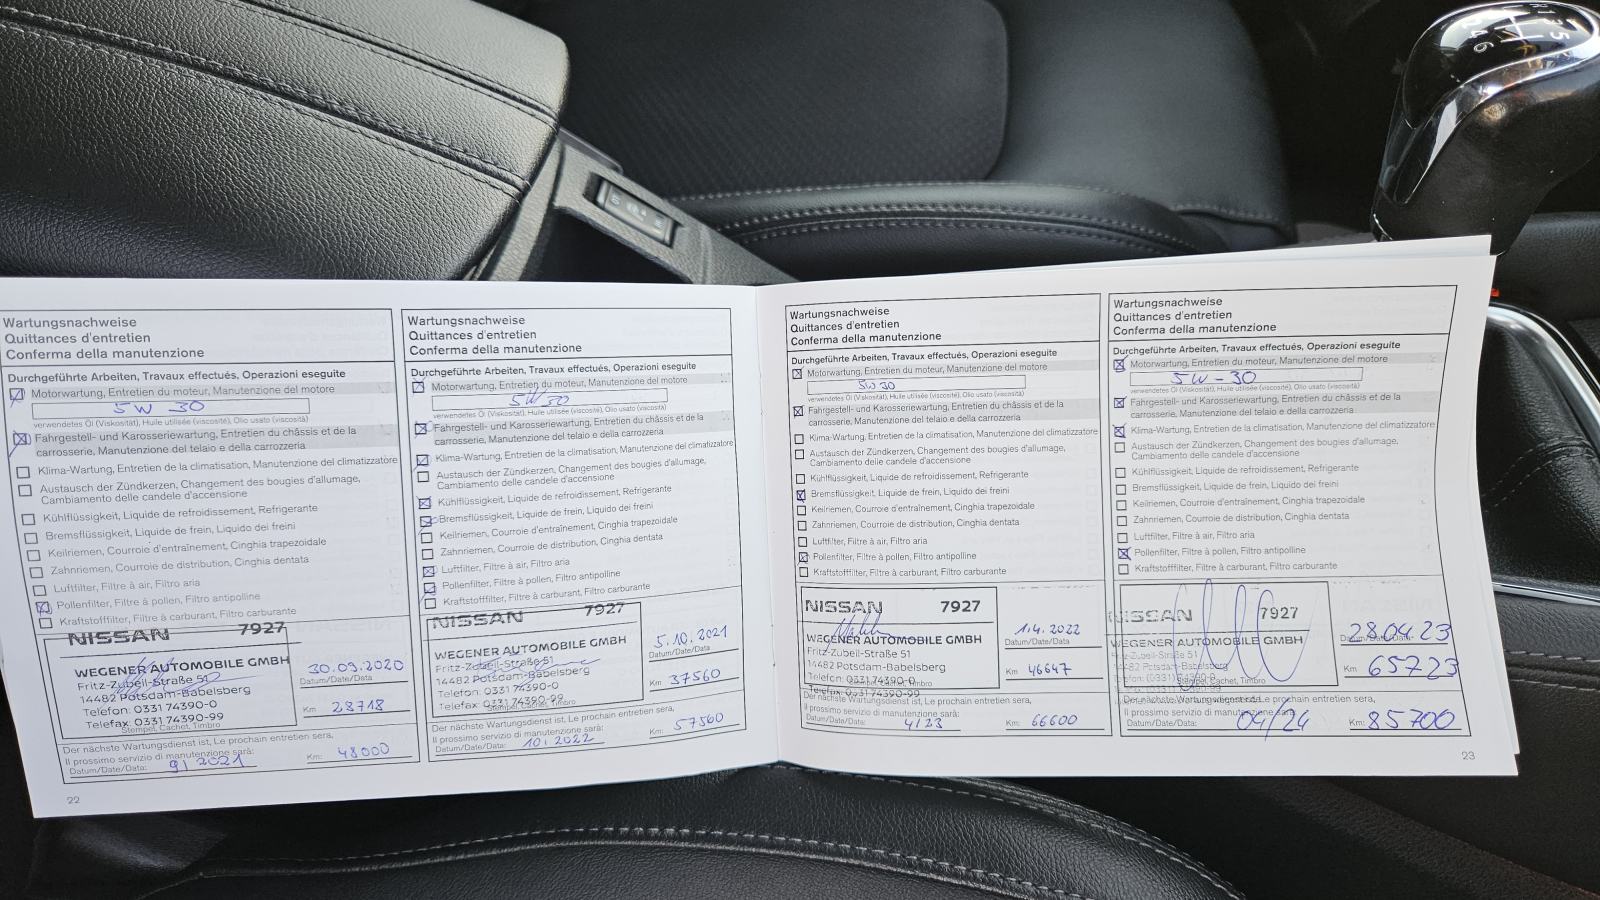 Wartungsnachweise
Quittances d'entretien
Conferma della manutenzione
Durchgeführte Arbeiten, Travaux effectués, Operazioni eseguite
Motorwartung, Entretien du moteur, Manutenzione del motore
5W 30
verwendetes Öl (Viskosität), Huile utilisée (viscosité), Olio usato (viscosità)
Fahrgestell- und Karosseriewartung, Entretien du châssis et de la
carrosserie, Manutenzione del telaio e della carrozzeria
Klima-Wartung, Entretien de la climatisation, Manutenzione del climatizzatore
Austausch der Zündkerzen, Changement des bougies d'allumage,
Cambiamento delle candele d'accensione
Kühlflüssigkeit, Liquide de refroidissement, Refrigerante
Bremsflüssigkeit, Liquide de frein, Liquido dei freini
Keilriemen, Courroie d'entraînement, Cinghia trapezoidale
Zahnriemen, Courroie de distribution, Cinghia dentata
Luftfilter, Filtre à air, Filtro aria
Pollenfilter, Filtre à pollen, Filtro antipolline
Kraftstofffilter, Filtre à carburant, Filtro carburante
NISSAN 7927
WEGENER AUTOMOBILE GMBH
Fritz-Zubeil-Straße 51
14482 Potsdam-Babelsberg
Telefon: 0331 74390-0
Telefax: 0331 74390-99
Stempel, Cachet, Timbro
30.09.2020
Datum/Date/Data
Km 28718
Der nächste Wartungsdienst ist, Le prochain entretien sera,
Il prossimo servizio di manutenzione sarà:
Datum/Date/Data: 9/2021
Km: 48000
22
Wartungsnachweise
Quittances d'entretien
Conferma della manutenzione
Durchgeführte Arbeiten, Travaux effectués, Operazioni eseguite
Motorwartung, Entretien du moteur, Manutenzione del motore
5W 30
verwendetes Öl (Viskosität), Huile utilisée (viscosité), Olio usato (viscosità)
Fahrgestell- und Karosseriewartung, Entretien du châssis et de la
carrosserie, Manutenzione del telaio e della carrozzeria
Klima-Wartung, Entretien de la climatisation, Manutenzione del climatizzatore
Austausch der Zündkerzen, Changement des bougies d'allumage,
Cambiamento delle candele d'accensione
Kühlflüssigkeit, Liquide de refroidissement, Refrigerante
Bremsflüssigkeit, Liquide de frein, Liquido dei freini
Keilriemen, Courroie d'entraînement, Cinghia trapezoidale
Zahnriemen, Courroie de distribution, Cinghia dentata
Luftfilter, Filtre à air, Filtro aria
Pollenfilter, Filtre à pollen, Filtro antipolline
Kraftstofffilter, Filtre à carburant, Filtro carburante
NISSAN 7927
WEGENER AUTOMOBILE GMBH
Fritz-Zubeil-Straße 51
14482 Potsdam-Babelsberg
Telefon: 0331 74390-0
Telefax: 0331 74390-99
Stempel, Cachet, Timbro
5.10.2021
Datum/Date/Data
Km 37560
Der nächste Wartungsdienst ist, Le prochain entretien sera,
Il prossimo servizio di manutenzione sarà:
Datum/Date/Data: 10.2022
Km: 57560
Wartungsnachweise
Quittances d'entretien
Conferma della manutenzione
Durchgeführte Arbeiten, Travaux effectués, Operazioni eseguite
Motorwartung, Entretien du moteur, Manutenzione del motore
5W30
verwendetes Öl (Viskosität), Huile utilisée (viscosité), Olio usato (viscosità)
Fahrgestell- und Karosseriewartung, Entretien du châssis et de la
carrosserie, Manutenzione del telaio e della carrozzeria
Klima-Wartung, Entretien de la climatisation, Manutenzione del climatizzatore
Austausch der Zündkerzen, Changement des bougies d'allumage,
Cambiamento delle candele d'accensione
Kühlflüssigkeit, Liquide de refroidissement, Refrigerante
Bremsflüssigkeit, Liquide de frein, Liquido dei freini
Keilriemen, Courroie d'entraînement, Cinghia trapezoidale
Zahnriemen, Courroie de distribution, Cinghia dentata
Luftfilter, Filtre à air, Filtro aria
Pollenfilter, Filtre à pollen, Filtro antipolline
Kraftstofffilter, Filtre à carburant, Filtro carburante
NISSAN 7927
WEGENER AUTOMOBILE GMBH
Fritz-Zubeil-Straße 51
14482 Potsdam-Babelsberg
Telefon: 0331 74390-0
Telefax: 0331 74390-99
1.4.2022
Datum/Date/Data
Km 46647
Der nächste Wartungsdienst ist, Le prochain entretien sera,
Il prossimo servizio di manutenzione sarà:
Datum/Date/Data: 4/23
Km: 66600
Wartungsnachweise
Quittances d'entretien
Conferma della manutenzione
Durchgeführte Arbeiten, Travaux effectués, Operazioni eseguite
Motorwartung, Entretien du moteur, Manutenzione del motore
5W-30
verwendetes Öl (Viskosität), Huile utilisée (viscosité), Olio usato (viscosità)
Fahrgestell- und Karosseriewartung, Entretien du châssis et de la
carrosserie, Manutenzione del telaio e della carrozzeria
Klima-Wartung, Entretien de la climatisation, Manutenzione del climatizzatore
Austausch der Zündkerzen, Changement des bougies d'allumage,
Cambiamento delle candele d'accensione
Kühlflüssigkeit, Liquide de refroidissement, Refrigerante
Bremsflüssigkeit, Liquide de frein, Liquido dei freini
Keilriemen, Courroie d'entraînement, Cinghia trapezoidale
Zahnriemen, Courroie de distribution, Cinghia dentata
Luftfilter, Filtre à air, Filtro aria
Pollenfilter, Filtre à pollen, Filtro antipolline
Kraftstofffilter, Filtre à carburant, Filtro carburante
NISSAN 7927
WEGENER AUTOMOBILE GMBH
Fritz-Zubeil-Straße 51
14482 Potsdam-Babelsberg
Stempel, Cachet, Timbro
28.04.23
Datum/Date/Data
Km 65723
Der nächste Wartungsdienst ist, Le prochain entretien sera,
Il prossimo servizio di manutenzione sarà:
Datum/Date/Data: 04/24
Km: 85700
23